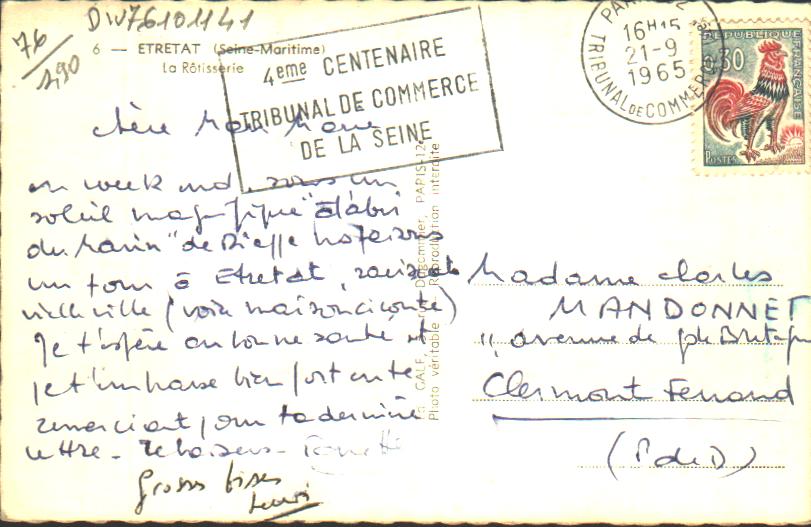 DW76101141
76
290
6 — ETRETAT (Seine-Maritime)
La Rôtisserie
4eme CENTENAIRE
TRIBUNAL DE COMMERCE
DE LA SEINE
16H15
21-9
1965
TRIBUNAL DE COMMERCE
REPUBLIQUE FRANÇAISE
0,30
POSTES
chère
en week end, sous un
soleil magnifique "à l'abri
du marin" de Dieppe nous faisons
un tour à Etretat, ravissante
vieille ville (voir maison ci contre)
Je t'espère en bonne santé et
je t'embrasse bien fort en te
remerciant pour ta dernière
lettre -
Grosses bises
Henri
GALF
PARIS-12e
Photo véritable Reproduction interdite
Madame Charles
MANDONNET
11 avenue de Gde Bretagne
Clermont Ferrand
(P de D)